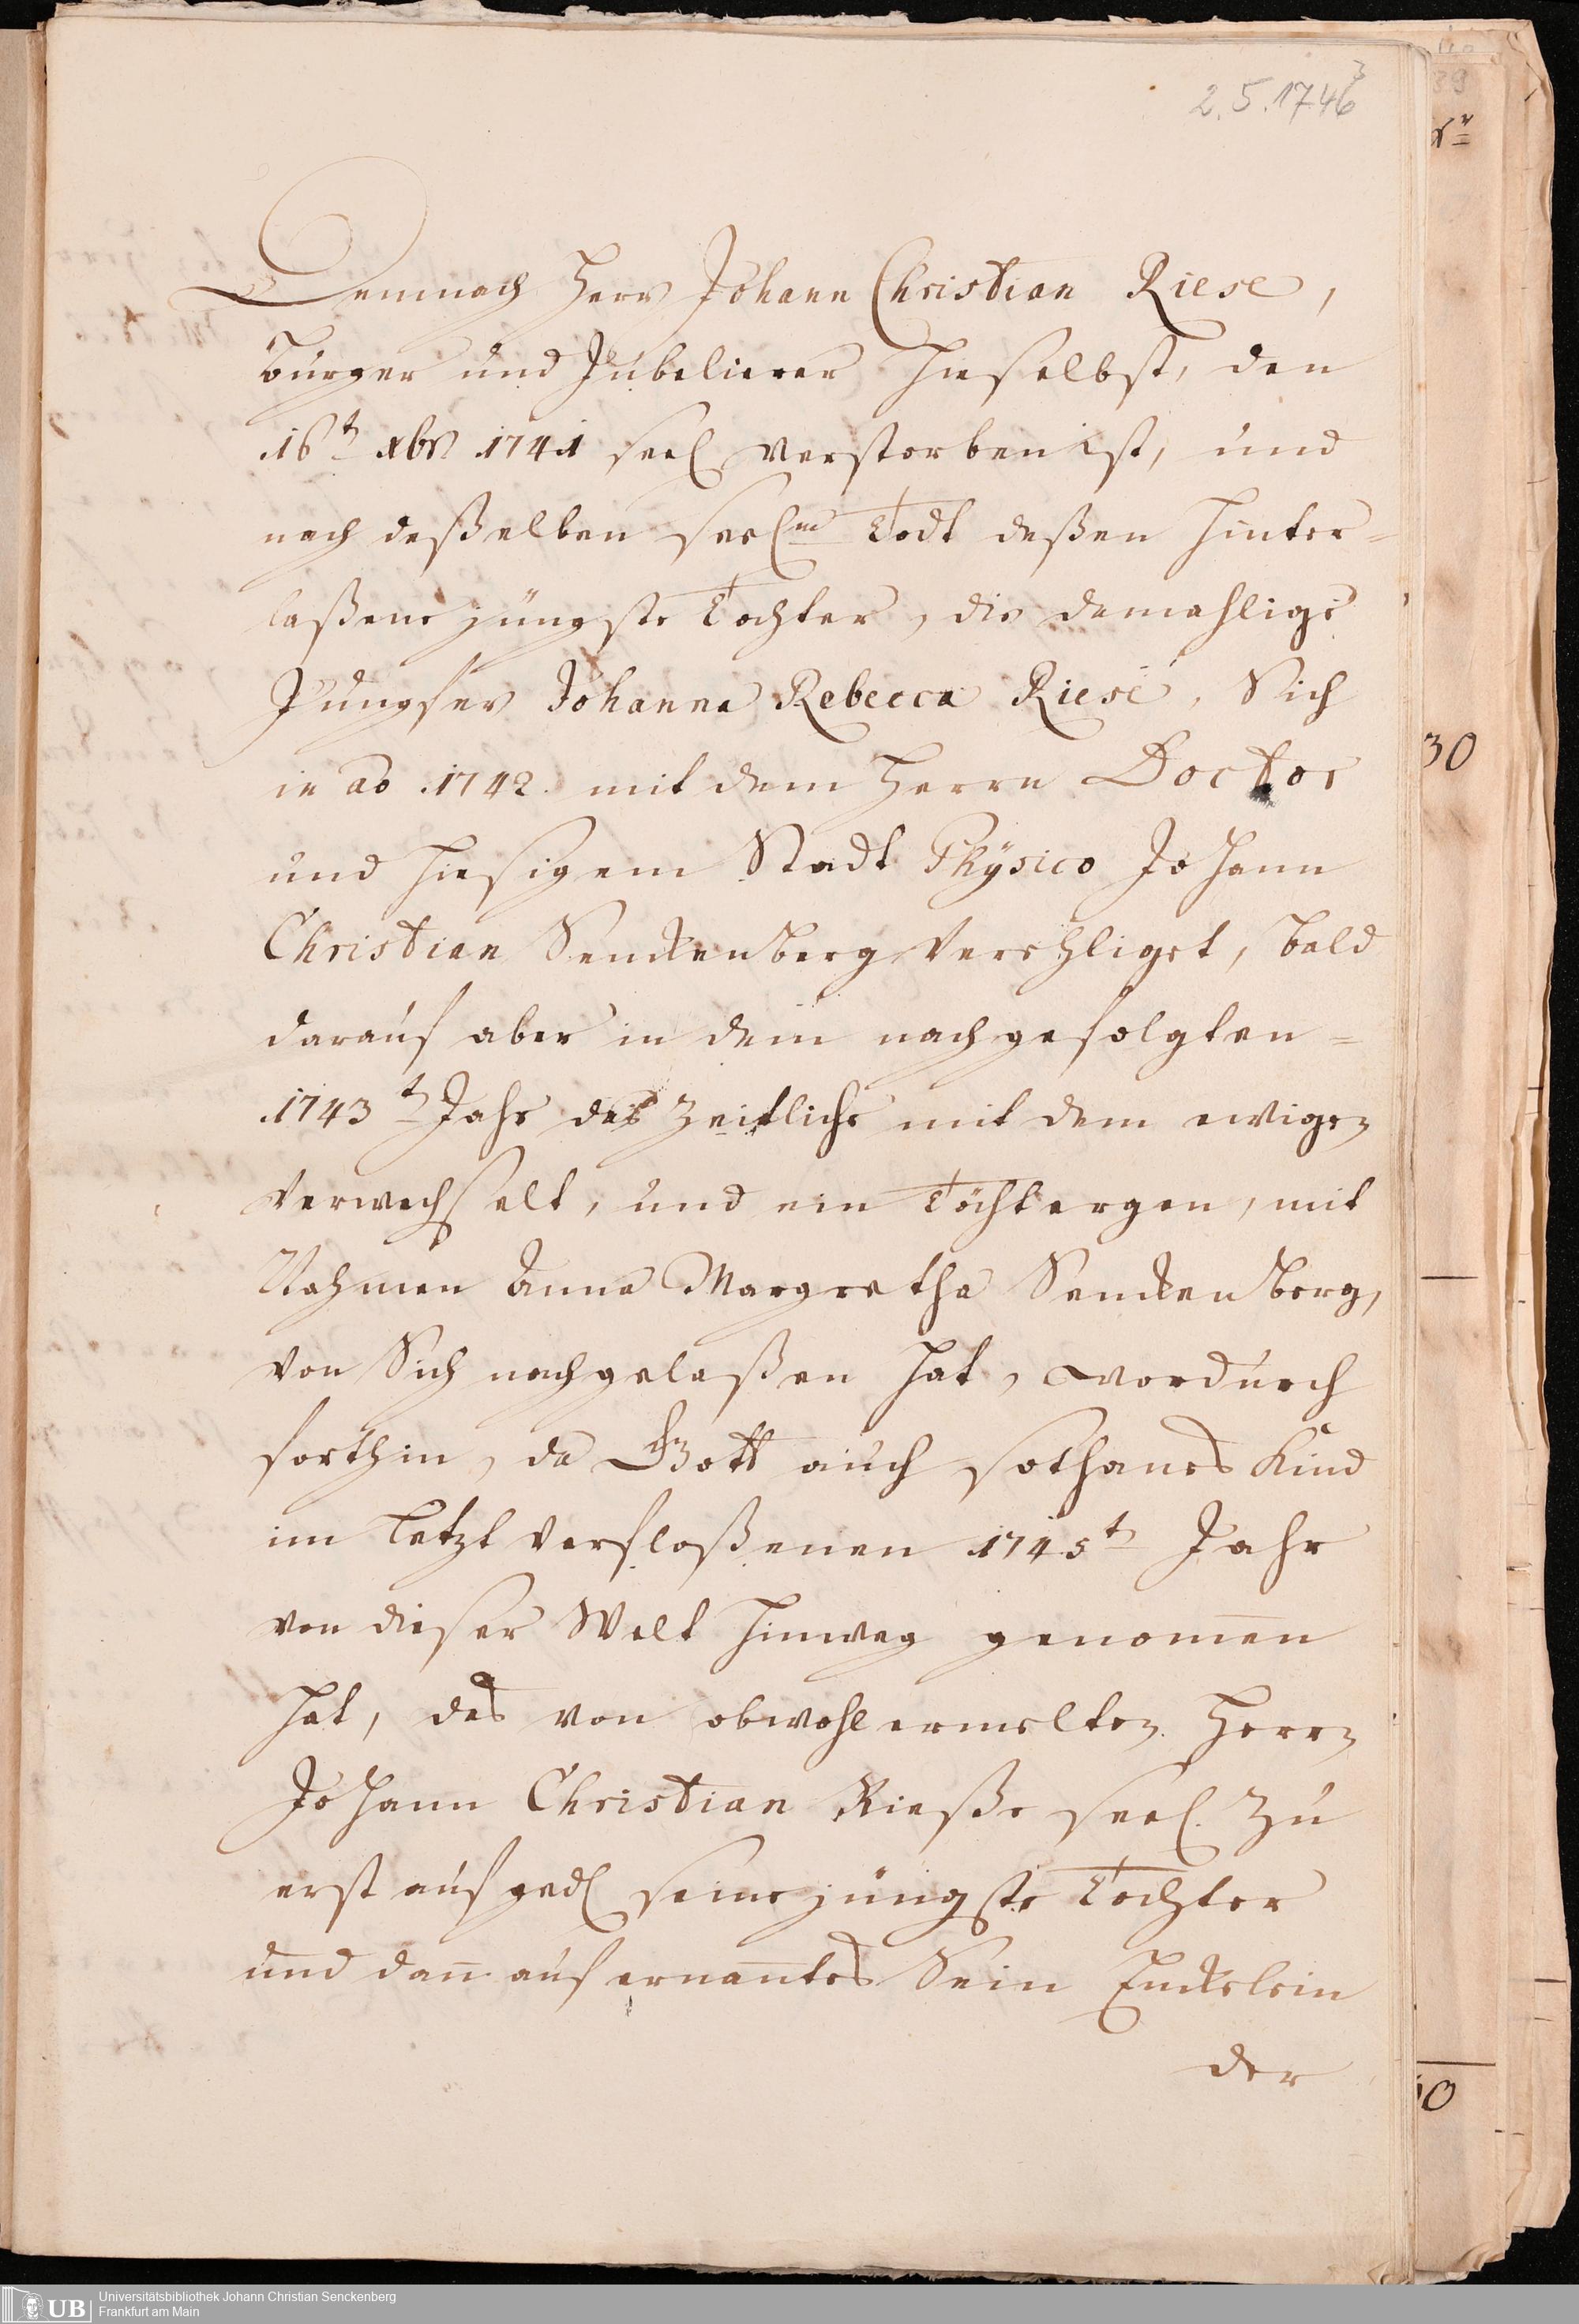 3
2.5.1746
Demnach Herr Johann Christian Riese,
Bürger und Jubelierer hieselbst, den
16t xbr 1741 seel verstorben ist, und
nach deßselben seelm Todt deßen hinter=
laßene jüngste Tochter, die damahlige
Jungfer Johanna Rebecca Riese, Sich
in ao 1742. mit dem Herrn Doctor
und hiesigem Stadt Physico Johann
Christian Senckenberg Verehliget, bald
darauf aber in dem nachgefolgten=
1743t Jahr das Zeitliche mit dem ewigen
Verwechselt, und ein Töchtergen, mit
Nahmen Anna Margretha Senckenberg,
von Sich nachgelaßen hat, wordurch
forthin, da Gott auch sothanes Kind
im letzt Verfloßenen 1745t Jahr
von dieser Welt hinweg genom̅en
hat, das von obwohlermelten Herrn
Johann Christian Rieße seel. Zu
erst auf gedl seine jüngste Tochter
und dan̅ auf ernan̅tes Sein Enckelein
der
30
Universitätsbibliothek Johann Christian Senckenberg
Frankfurt am Main
UB